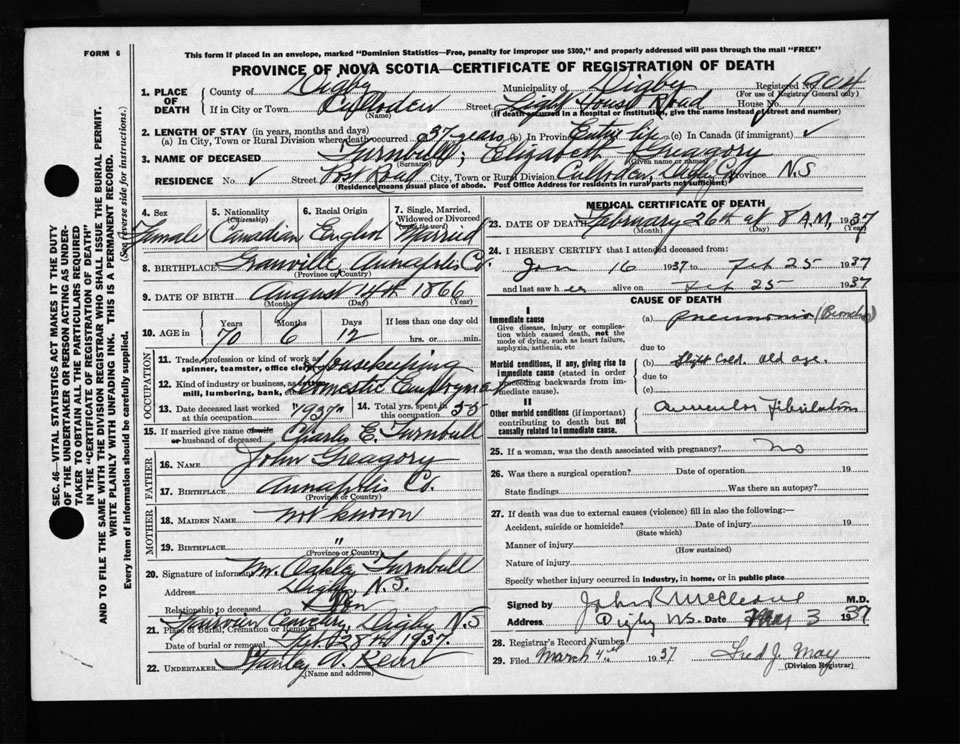 FORM 6
This form if placed in an envelope, marked "Dominion Statistics—Free, penalty for improper use $300," and properly addressed will pass through the mail "FREE"
PROVINCE OF NOVA SCOTIA—CERTIFICATE OF REGISTRATION OF DEATH
SEC. 46—VITAL STATISTICS ACT MAKES IT THE DUTY
OF THE UNDERTAKER OR PERSON ACTING AS UNDER-
TAKER TO OBTAIN ALL THE PARTICULARS REQUIRED
IN THE "CERTIFICATE OF REGISTRATION OF DEATH"
AND TO FILE THE SAME WITH THE DIVISION REGISTRAR WHO SHALL ISSUE THE BURIAL PERMIT.
WRITE PLAINLY WITH UNFADING INK. THIS IS A PERMANENT RECORD.
Every item of information should be carefully supplied. (See reverse side for instructions.)
1. PLACE OF DEATH
County of Digby Municipality of Digby Registered No. 904
(For use of Registrar General only)
If in City or Town Culloden Street Light House Road House No.
(Name) (If death occurred in a hospital or institution, give the name instead of street and number)
2. LENGTH OF STAY (in years, months and days)
(a) In City, Town or Rural Division where death occurred 37 years (b) In Province Entire life (c) In Canada (if immigrant) ✓
3. NAME OF DECEASED Turnbull, Elizabeth Greagory
(Surname) (Given name or names)
RESIDENCE No. ✓ Street Post Road City, Town or Rural Division Culloden, Digby Co Province N.S
(Residence means usual place of abode. Post Office Address for residents in rural parts not sufficient)
4. Sex Female
5. Nationality (Citizenship) Canadian
6. Racial Origin English
7. Single, Married, Widowed or Divorced (write the word) Married
8. BIRTHPLACE Granville Annapolis Co.
(Province or Country)
9. DATE OF BIRTH August 14th 1866
(Month) (Day) (Year)
10. AGE in Years 70 Months 6 Days 12 If less than one day old hrs. or min.
OCCUPATION
11. Trade, profession or kind of work as spinner, teamster, office clerk, Housekeeping
12. Kind of industry or business, as cotton mill, lumbering, bank, etc. Domestic Employment
13. Date deceased last worked at this occupation "1937" 14. Total yrs. spent in this occupation 55
15. If married give name of wife or husband of deceased Charles E. Turnbull
FATHER
16. NAME John Greagory
17. BIRTHPLACE Annapolis Co.
(Province or Country)
MOTHER
18. MAIDEN NAME not known
19. BIRTHPLACE "
(Province or Country)
20. Signature of informant Mr. Oakley Turnbull
Address Digby N.S.
Relationship to deceased Son
21. Place of Burial, Cremation or Removal Fairview Cemetery, Digby N.S
Date of burial or removal 28th 1937
22. UNDERTAKER
(Name and address)
MEDICAL CERTIFICATE OF DEATH
23. DATE OF DEATH February 26th at 8 A.M, 1937
(Month) (Day) (Year)
24. I HEREBY CERTIFY that I attended deceased from
Jan 16 1937 to Feb 25 1937
and last saw her alive on Feb 25 1937
CAUSE OF DEATH
I
Immediate cause
Give disease, injury or complication which caused death, not the mode of dying, such as heart failure, asphyxia, asthenia, etc
(a) Pneumonia (Bronchial)
due to
Morbid conditions, if any, giving rise to immediate cause (stated in order proceeding backwards from immediate cause).
(b) Slight Cold. old age.
due to
(c)
II
Other morbid conditions (if important) contributing to death but not causally related to immediate cause.
Auricular Fibrilation
25. If a woman, was the death associated with pregnancy? no
26. Was there a surgical operation? Date of operation 19
State findings Was there an autopsy?
27. If death was due to external causes (violence) fill in also the following:—
Accident, suicide or homicide? Date of injury 19
(State which)
Manner of injury
(How sustained)
Nature of injury
Specify whether injury occurred in industry, in home, or in public place
Signed by M.D.
Address Digby N.S. Date 3 1937
28. Registrar's Record Number
29. Filed March 4th 1937 Fred J. May
(Division Registrar)